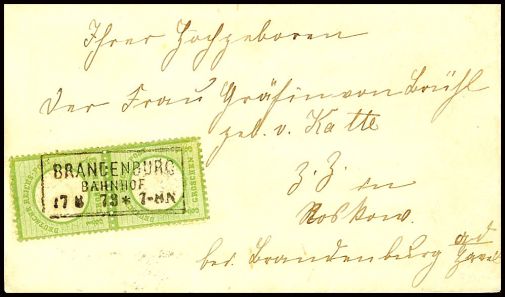 Ihrer Hochgeboren
Der Frau Gräfin von Brühl
geb. v. Katte
z. Z. in
Roskow.
bei Brandenburg a/d
Havel
BRANDENBURG
BAHNHOF
17 8 73 * 7-8N